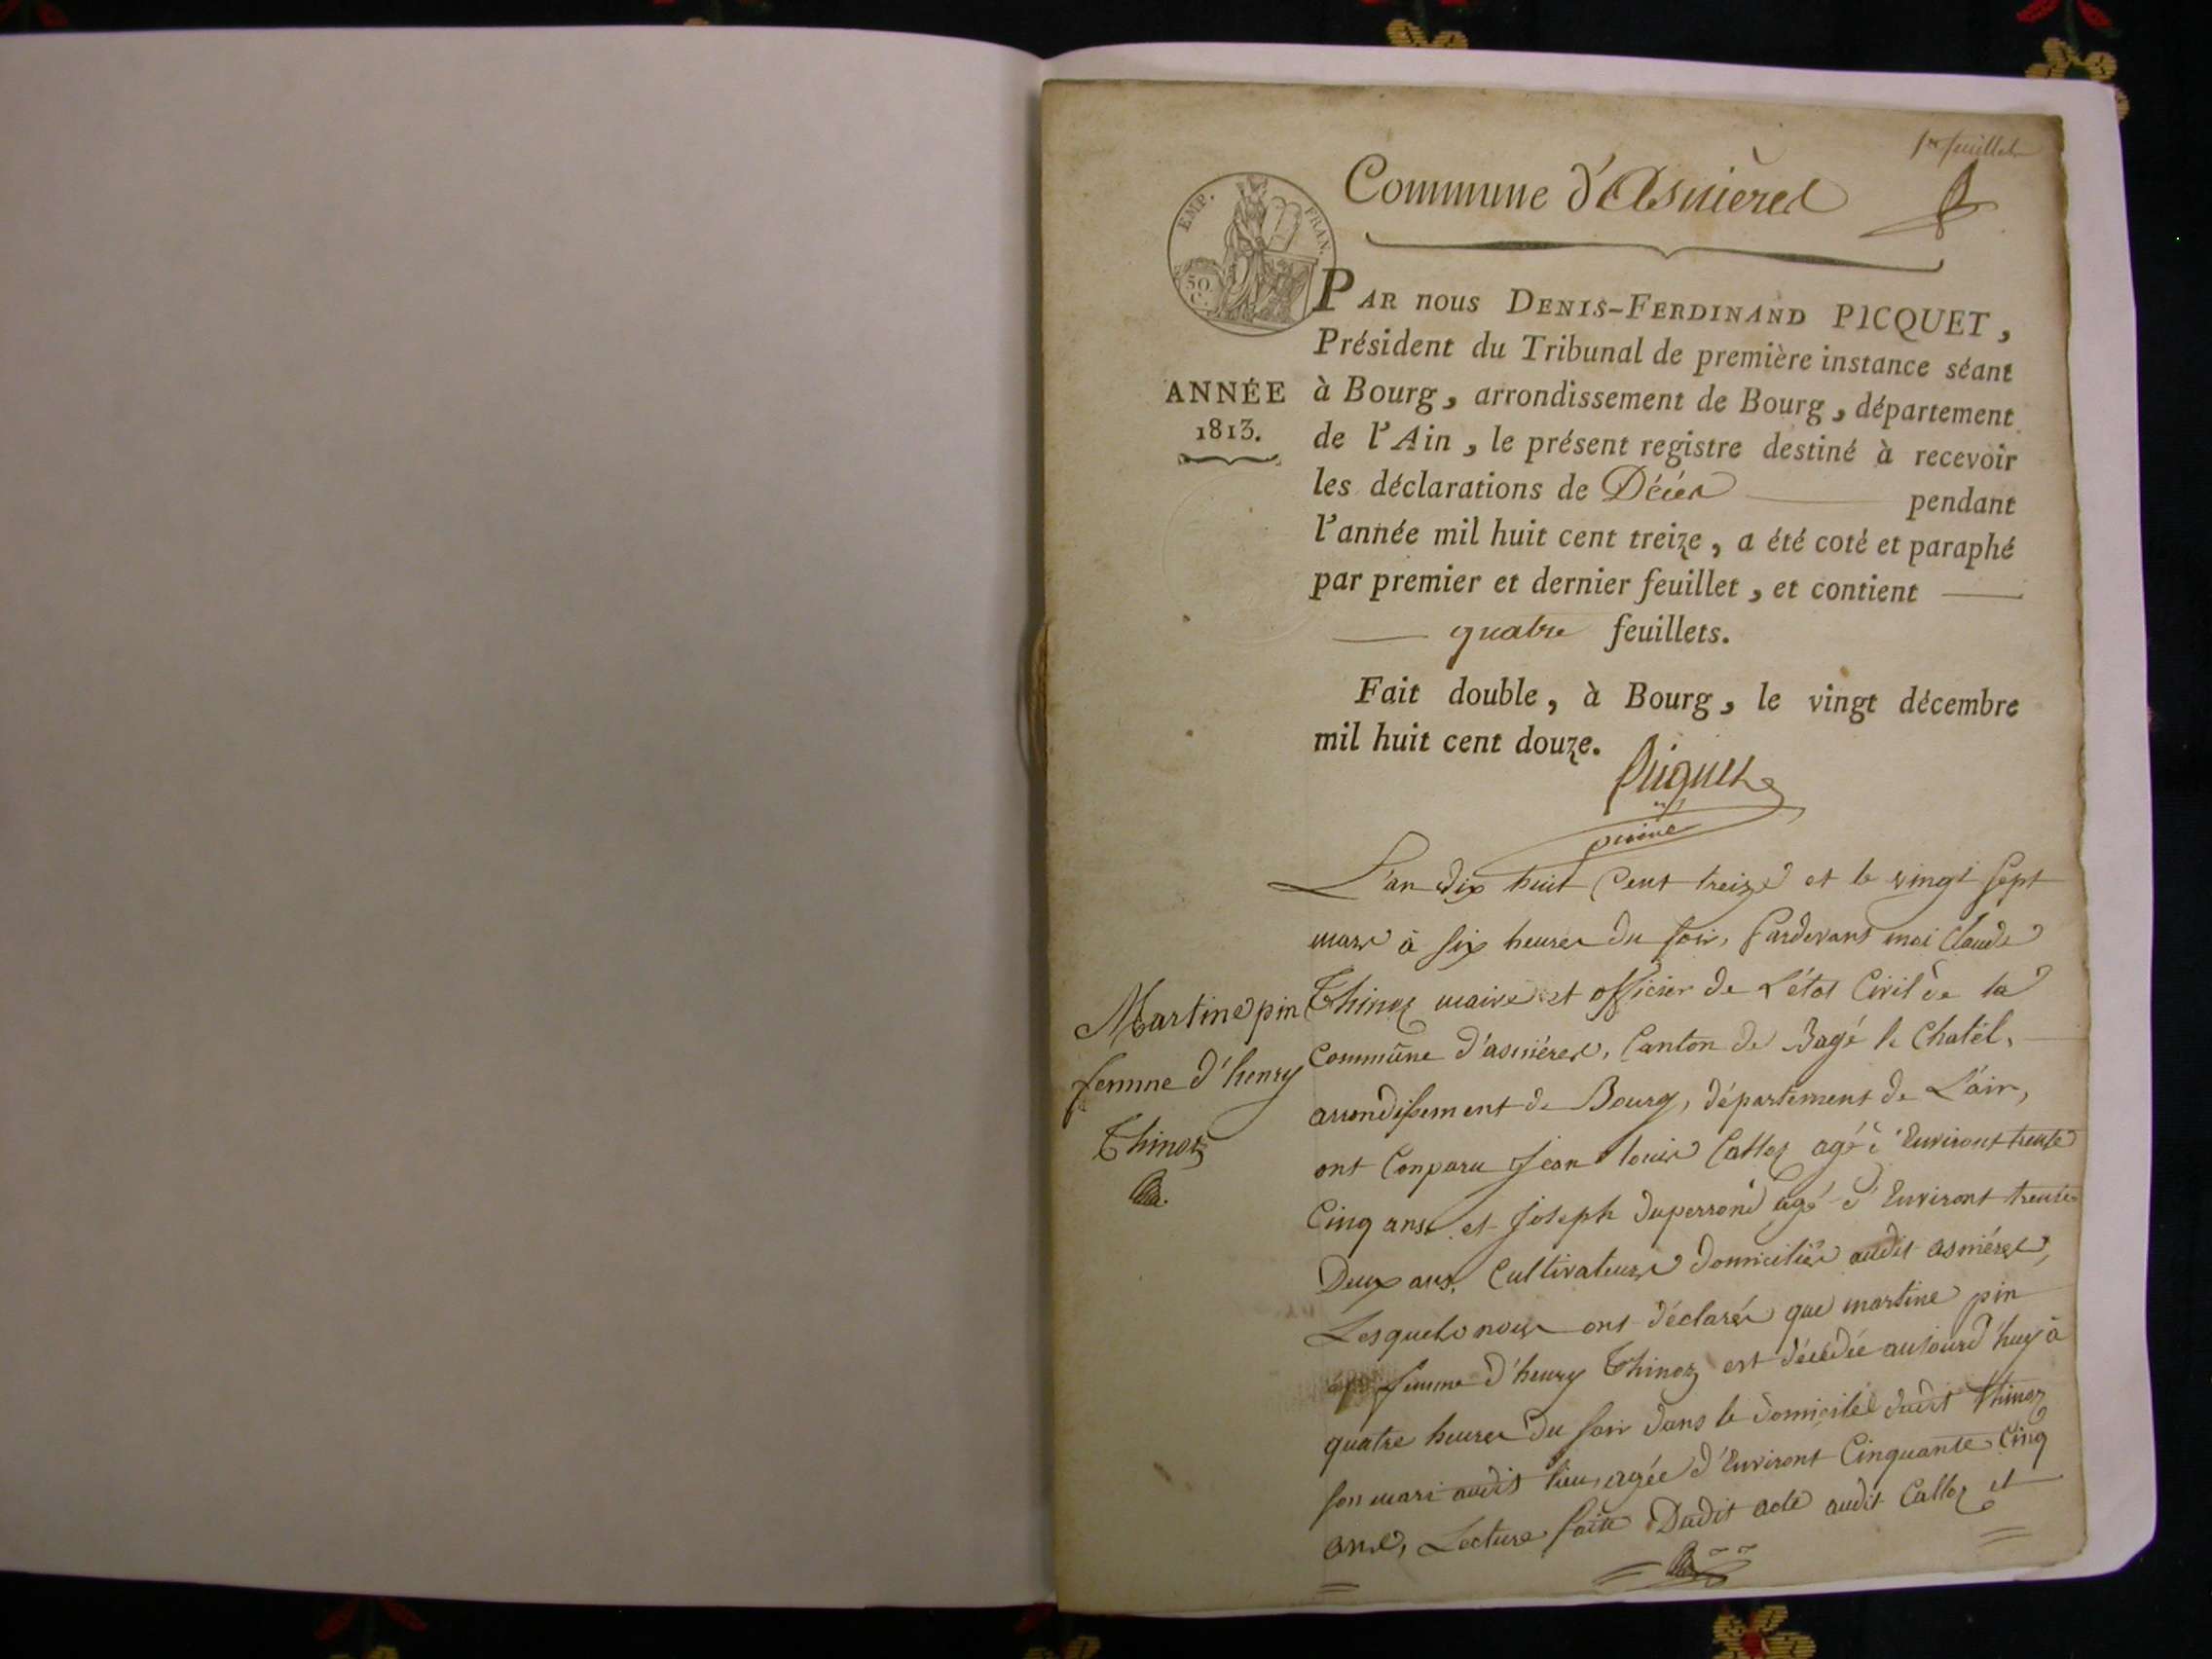 1er feuillet
Commune d'Asnieres
EMP. FRAN.
50 C.
ANNÉE
1813.
PAR nous DENIS-FERDINAND PICQUET,
Président du Tribunal de première instance séant
à Bourg, arrondissement de Bourg, département
de l'Ain, le présent registre destiné à recevoir
les déclarations de Décès pendant
l'année mil huit cent treize, a été coté et paraphé
par premier et dernier feuillet, et contient
quatre feuillets.
Fait double, à Bourg, le vingt décembre
mil huit cent douze.
Picquet
Martine pin
femme d'henry
Thinoz
L'an dix huit Cent treize et le vingt sept
mars à six heures du soir, Pardevant moi Claude
Thinoz maire et officier de L'état Civil de la
Commune d'asniéres, Canton de Bagé le Chatel,
arrondissement de Bourg, département de L'ain,
ont Conparu Jean louis Catloz agé d'Environt trente
Cinq ans et Joseph duperron agé d'Environt trente
Deux ans, Cultivateurs domiciliés audit asniéres,
Lesquels nous ont déclarés que martine pin
femme d'henry Thinoz est décédée aujourd'huy à
quatre heures du soir dans le domicile dudit Thinoz
son mari audit lieu, agée d'Environt Cinquante Cinq
ans, Lecture faite Dudit acte audit Catloz et